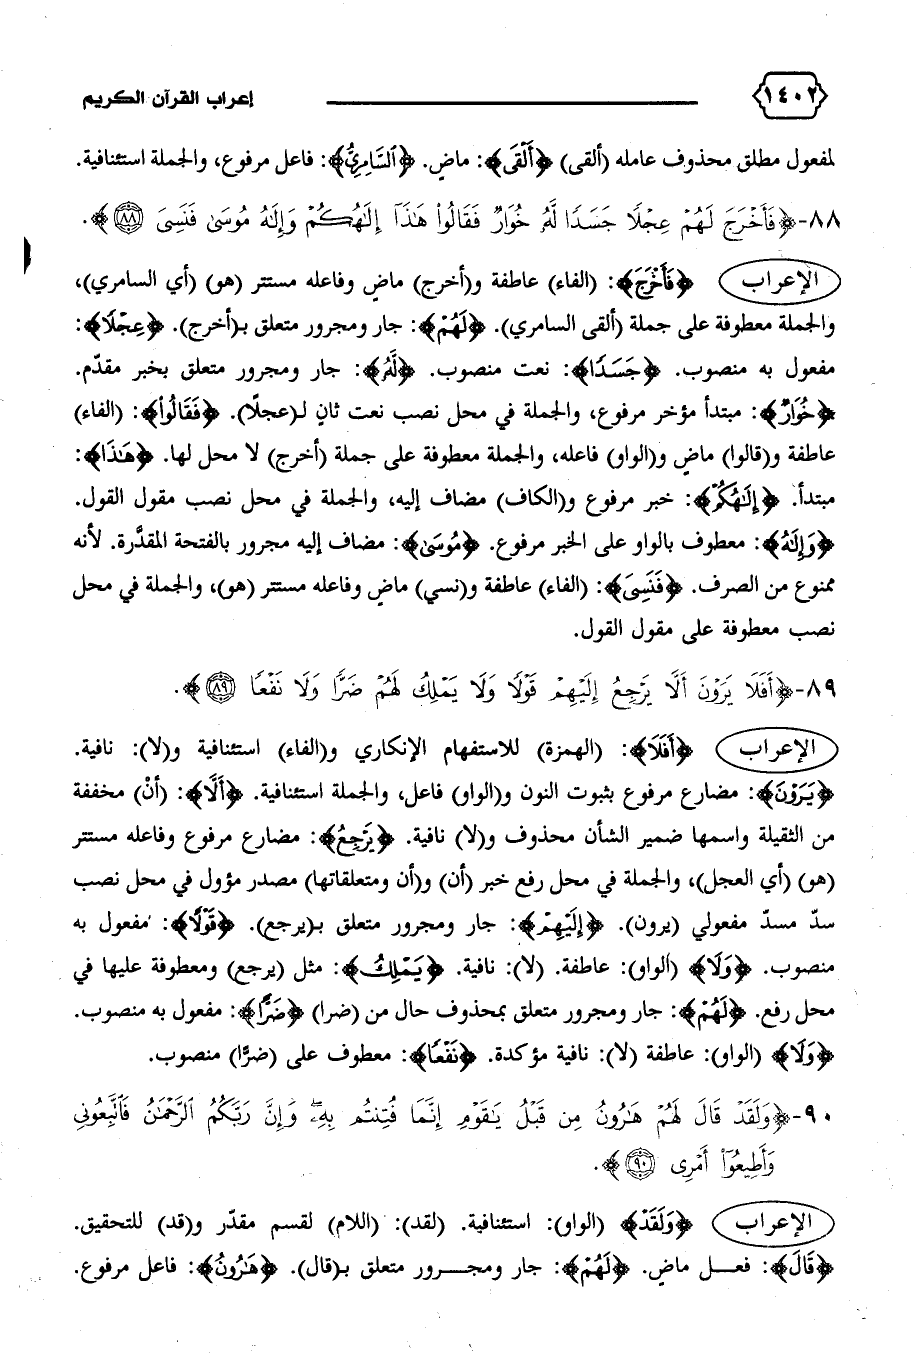 ١٤٠٢ إعراب القرآن الكريم
لمفعول مطلق محذوف عامله (ألقى) ﴿أَلْقَى﴾: ماضٍ. ﴿السَّامِرِيُّ﴾: فاعل مرفوع، والجملة استئنافية.
٨٨-﴿فَأَخْرَجَ لَهُمْ عِجْلًا جَسَدًا لَّهُ خُوَارٌ فَقَالُوا۟ هَٰذَآ إِلَٰهُكُمْ وَإِلَٰهُ مُوسَىٰ فَنَسِىَ ٨٨﴾.
الإعراب ﴿فَأَخْرَجَ﴾: (الفاء) عاطفة و(أخرج) ماضٍ وفاعله مستتر (هو) (أي السامري)،
والجملة معطوفة على جملة (ألقى السامري). ﴿لَهُمْ﴾: جار ومجرور متعلق بـ(أخرج). ﴿عِجْلًا﴾:
مفعول به منصوب. ﴿جَسَدًا﴾: نعت منصوب. ﴿لَّهُ﴾: جار ومجرور متعلق بخبر مقدّم.
﴿خُوَارٌ﴾: مبتدأ مؤخر مرفوع، والجملة في محل نصب نعت ثانٍ لـ(عجلًا). ﴿فَقَالُوا۟﴾: (الفاء)
عاطفة و(قالوا) ماضٍ و(الواو) فاعله، والجملة معطوفة على جملة (أخرج) لا محل لها. ﴿هَٰذَا﴾:
مبتدأ. ﴿إِلَٰهُكُمْ﴾: خبر مرفوع و(الكاف) مضاف إليه، والجملة في محل نصب مقول القول.
﴿وَإِلَٰهُ﴾: معطوف بالواو على الخبر مرفوع. ﴿مُوسَىٰ﴾: مضاف إليه مجرور بالفتحة المقدَّرة. لأنه
ممنوع من الصرف. ﴿فَنَسِىَ﴾: (الفاء) عاطفة و(نسي) ماضٍ وفاعله مستتر (هو)، والجملة في محل
نصب معطوفة على مقول القول.
٨٩-﴿أَفَلَا يَرَوْنَ أَلَّا يَرْجِعُ إِلَيْهِمْ قَوْلًا وَلَا يَمْلِكُ لَهُمْ ضَرًّا وَلَا نَفْعًا ٨٩﴾.
الإعراب ﴿أَفَلَا﴾: (الهمزة) للاستفهام الإنكاري و(الفاء) استئنافية و(لا): نافية.
﴿يَرَوْنَ﴾: مضارع مرفوع بثبوت النون و(الواو) فاعل، والجملة استئنافية. ﴿أَلَّا﴾: (أنْ) مخففة
من الثقيلة واسمها ضمير الشأن محذوف و(لا) نافية. ﴿يَرْجِعُ﴾: مضارع مرفوع وفاعله مستتر
(هو) (أي العجل)، والجملة في محل رفع خبر (أن) و(أن ومتعلقاتها) مصدر مؤول في محل نصب
سدّ مسدّ مفعولي (يرون). ﴿إِلَيْهِمْ﴾: جار ومجرور متعلق بـ(يرجع). ﴿قَوْلًا﴾: مفعول به
منصوب. ﴿وَلَا﴾ (الواو): عاطفة. (لا): نافية. ﴿يَمْلِكُ﴾: مثل (يرجع) ومعطوفة عليها في
محل رفع. ﴿لَهُمْ﴾: جار ومجرور متعلق بمحذوف حال من (ضرا) ﴿ضَرًّا﴾: مفعول به منصوب.
﴿وَلَا﴾ (الواو): عاطفة (لا): نافية مؤكدة. ﴿نَفْعًا﴾: معطوف على (ضرًّا) منصوب.
٩٠-﴿وَلَقَدْ قَالَ لَهُمْ هَٰرُونُ مِن قَبْلُ يَٰقَوْمِ إِنَّمَا فُتِنتُم بِهِۦ وَإِنَّ رَبَّكُمُ الرَّحْمَٰنُ فَاتَّبِعُونِى
وَأَطِيعُوٓا۟ أَمْرِى ٩٠﴾.
الإعراب ﴿وَلَقَدْ﴾ (الواو): استئنافية. (لقد): (اللام) لقسم مقدّر و(قد) للتحقيق.
﴿قَالَ﴾: فعل ماضٍ. ﴿لَهُمْ﴾: جار ومجرور متعلق بـ(قال). ﴿هَٰرُونُ﴾: فاعل مرفوع.